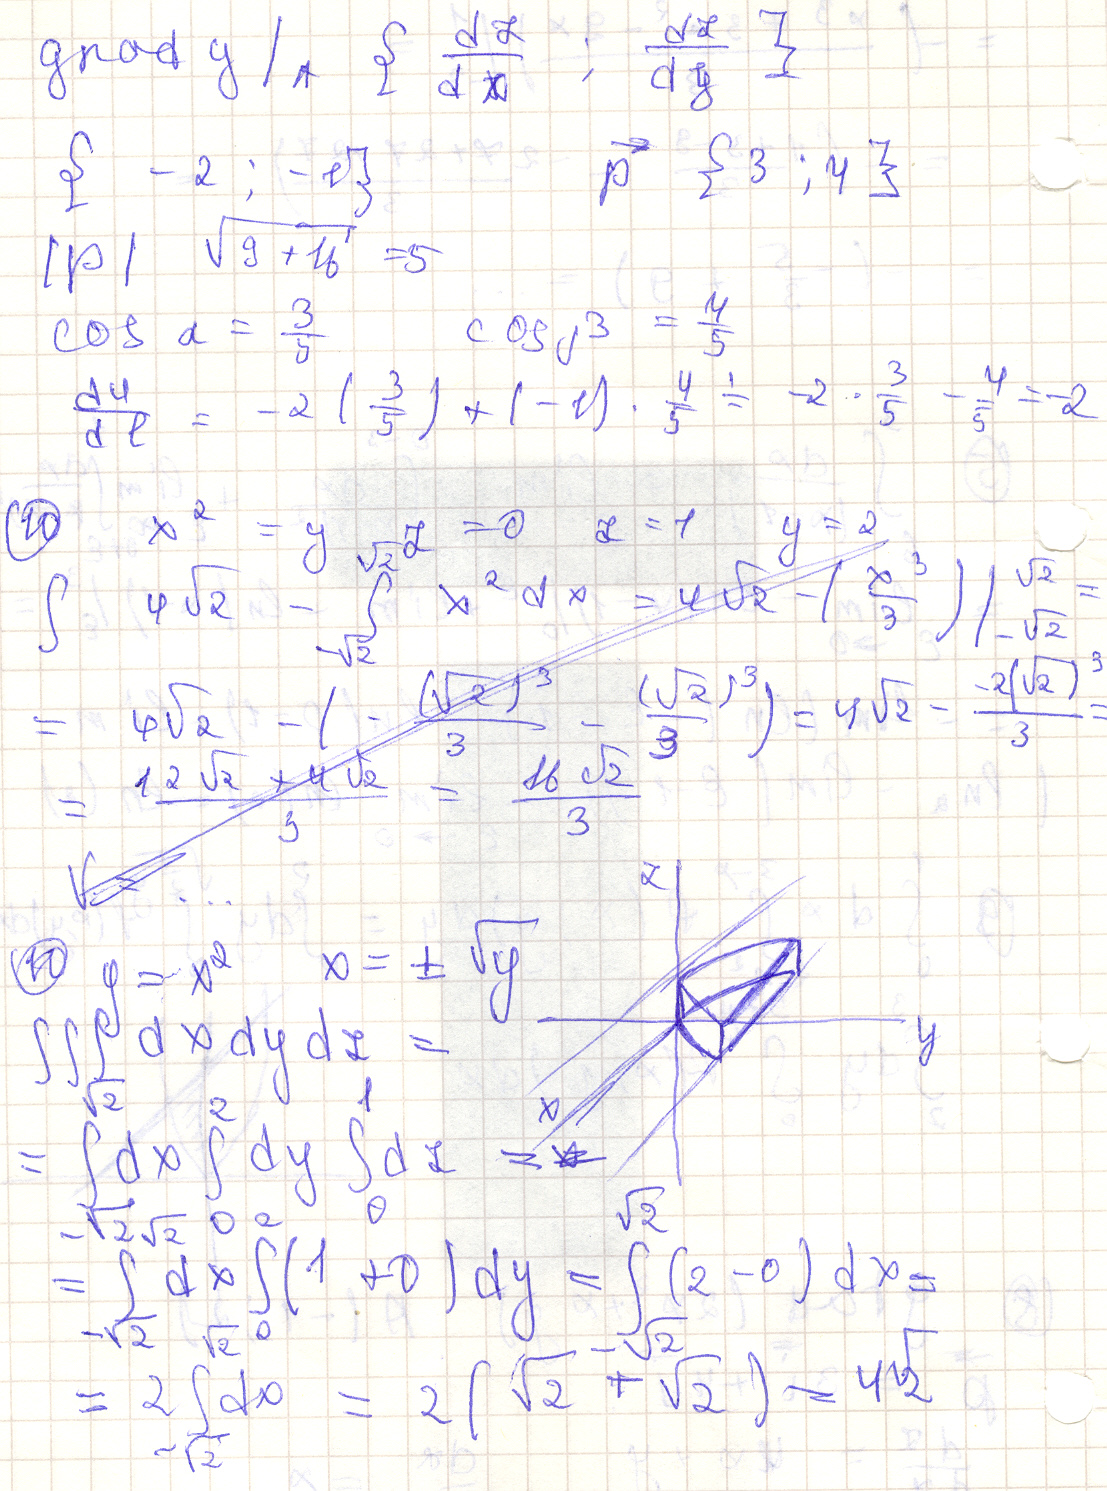 grad y /A { dz/dx ; dz/dy }
{ -2 ; -1 } p⃗ {3 ; 4}
|p| √(9+16) = 5
cos α = 3/5 cos β = 4/5
du/dl = -2 (3/5) + (-1) · 4/5 = -2 · 3/5 - 4/5 = -2
(10) x² = y z = 0 z = 1 y = 2
∫ 4√2 - ∫_{-√2}^{√2} x² dx = 4√2 - (x³/3) |_{-√2}^{√2} =
= 4√2 - ( - (√2)³/3 - (√2)³/3 ) = 4√2 - -2(√2)³/3 =
= 12√2 + 4√2 / 3 = 16√2/3
V = ...
z
(10) y = x² x = ± √y
y
∫∫∫ dx dy dz =
x
= ∫_{-√2}^{√2} dx ∫_0^2 dy ∫_0^1 dz =
= ∫_{-√2}^{√2} dx ∫_0^2 (1 + 0) dy = ∫_{-√2}^{√2} (2 - 0) dx =
= 2 ∫_{-√2}^{√2} dx = 2 (√2 + √2) = 4√2